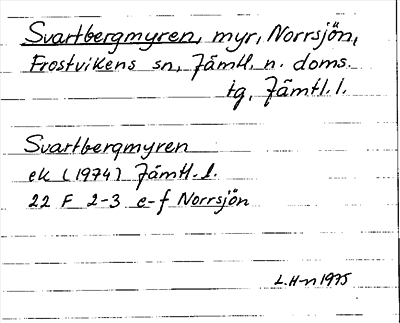 Svartbergmyren, myr, Norrsjön,
Frostvikens sn, Jämtl. n. doms.
tg, Jämtl. l.
Svartbergmyren
ek (1974) Jämtl. l.
22 F 2-3 e-f Norrsjön
L. H-n 1975